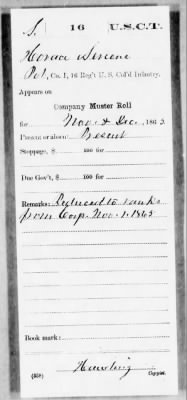 S. 16 U.S.C.T.
Horace
Pvt, Co. I, 16 Reg't U. S. Col'd Infantry.
Appears on
Company Muster Roll
for Nov. & Dec., 1865.
Present or absent Present
Stoppage, $ 100 for
Due Gov't, $ 100 for
Remarks: Reduced to ranks
from Corp. Nov. 1. 1865
Book mark:
(358) Copyist.